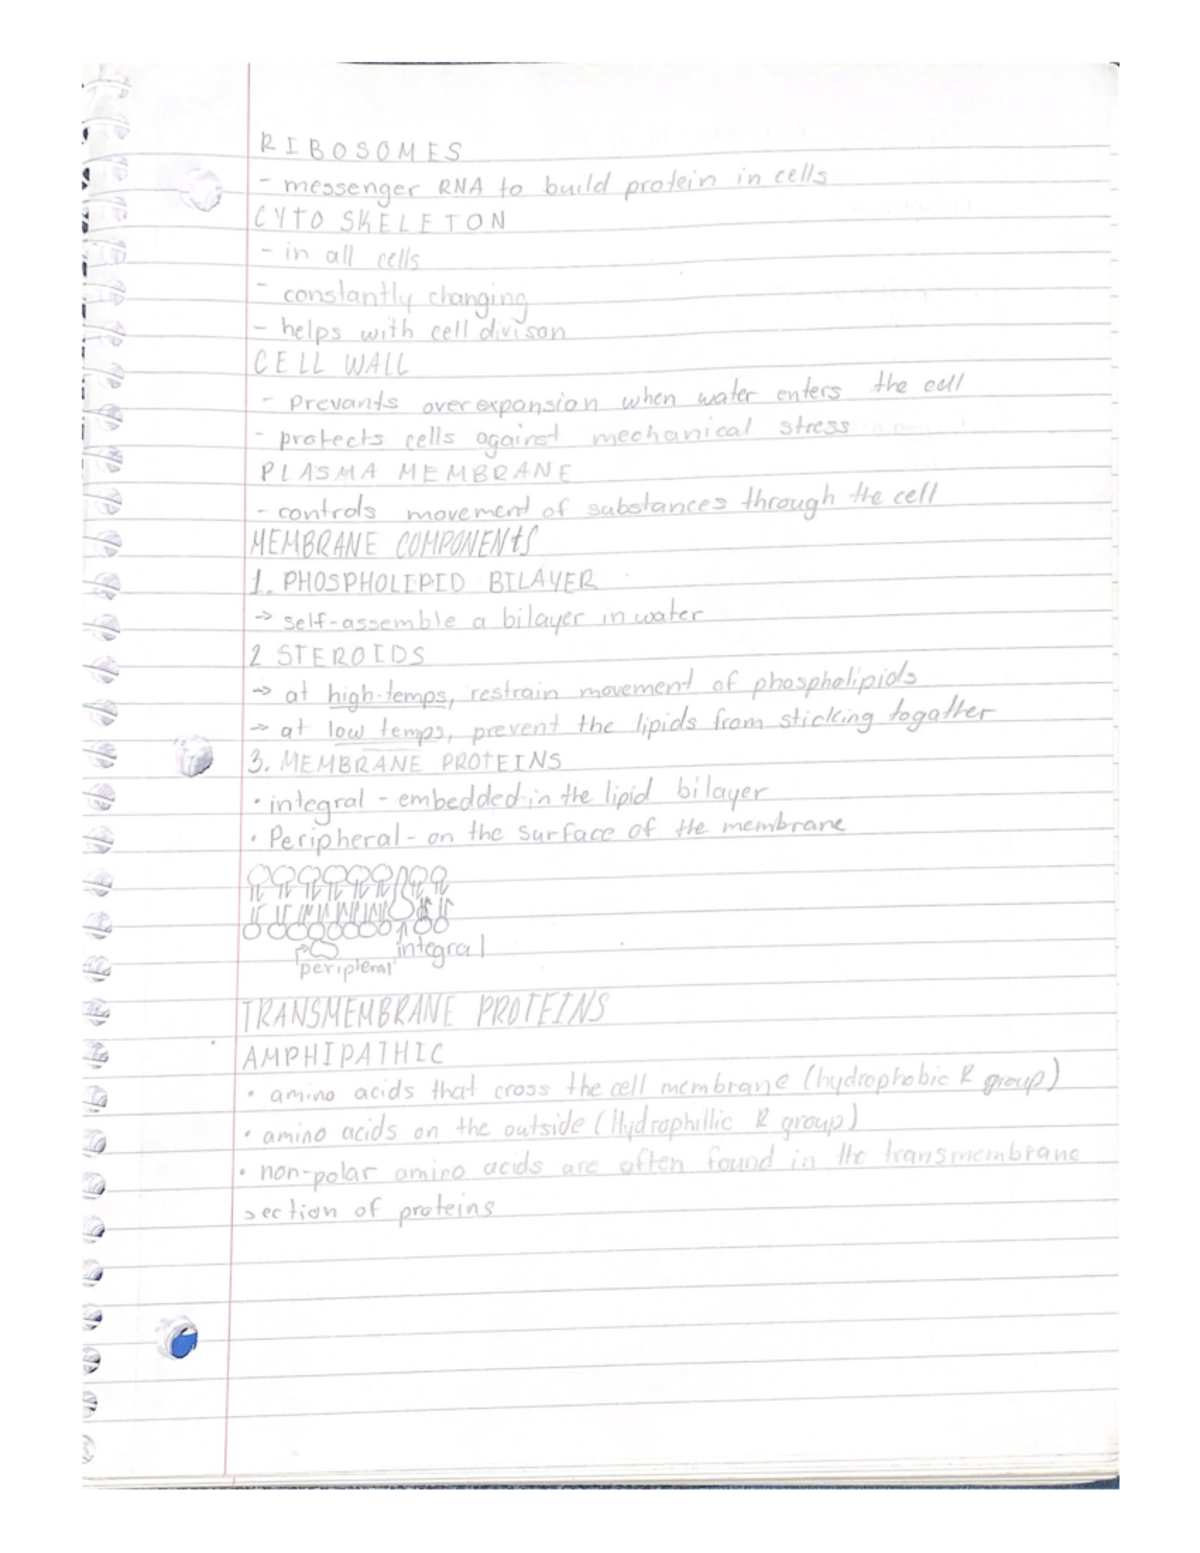 RIBOSOMES
- messenger RNA to build protein in cells
CYTO SKELETON
- in all cells
- constantly changing
- helps with cell divison
CELL WALL
- prevants overexpansion when water enters the cell
- protects cells against mechanical stress
PLASMA MEMBRANE
- controls movement of substances through the cell
MEMBRANE COMPONENtS
1. PHOSPHOLIPID BILAYER
→ self-assemble a bilayer in water
2 STEROIDS
→ at high-temps, restrain movement of phospholipids
→ at low temps, prevent the lipids from sticking togather
3. MEMBRANE PROTEINS
• integral - embedded in the lipid bilayer
• Peripheral - on the surface of the membrane
integral
peripheral
TRANSMEMBRANE PROTEINS
AMPHIPATHIC
• amino acids that cross the cell membrane (hydrophobic R group)
• amino acids on the outside (Hydrophillic R group)
• non-polar amino acids are often found in the transmembrane
section of proteins